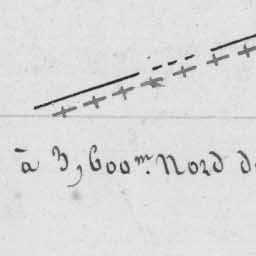 à 3,600m. Nord